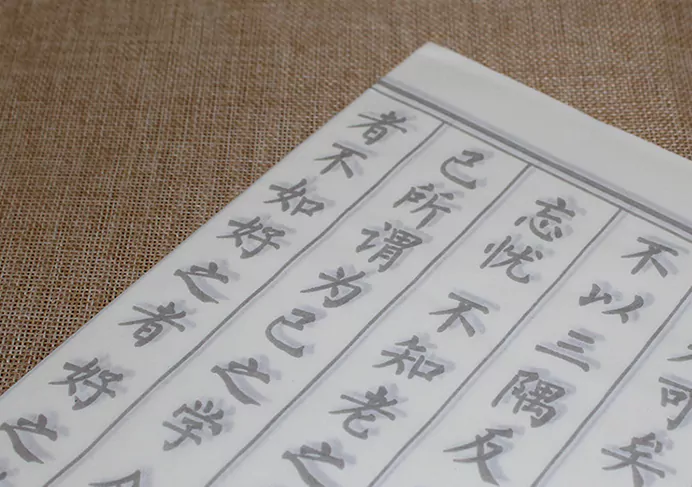 可矣
不以三隅反
忘忧 不知老之
己所谓为己之学
者不如好之者好之